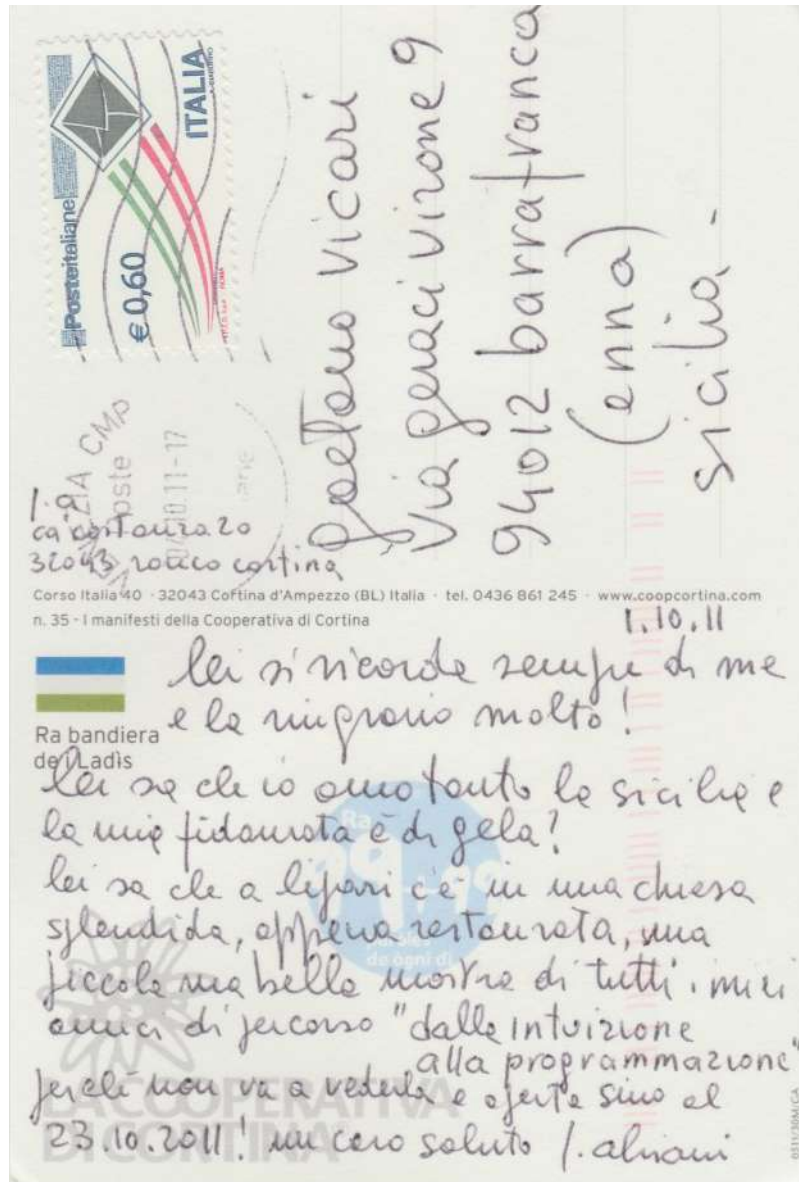 Posteitaliane
€ 0,60
ITALIA
ROMA
CMP
Poste
10.11-17
gaetano vicari
via geraci virone 9
94012 barrafranca
(enna)
sicilia -
ca' costanza 20
32043 ronco cortina
Corso Italia 40 · 32043 Cortina d'Ampezzo (BL) Italia · tel. 0436 861 245 · www.coopcortina.com
n. 35 - I manifesti della Cooperativa di Cortina
1.10.11
lei si ricorda sempre di me
e la ringrazio molto!
Ra bandiera
de i Ladìs
lei sa che io amo tanto la sicilia e
la mia fidanzata è di gela?
lei sa che a lipari c'è in una chiesa
splendida, appena restaurata, una
piccola ma bella mostra di tutti i miei
amici di percorso "dalla intuizione
alla programmazione"
perché non va a vederla è aperta sino al
23.10.2011! un caro saluto
Ra
de ogni dì
LA COOPERATIVA
DI CORTINA
0511/30M/CA